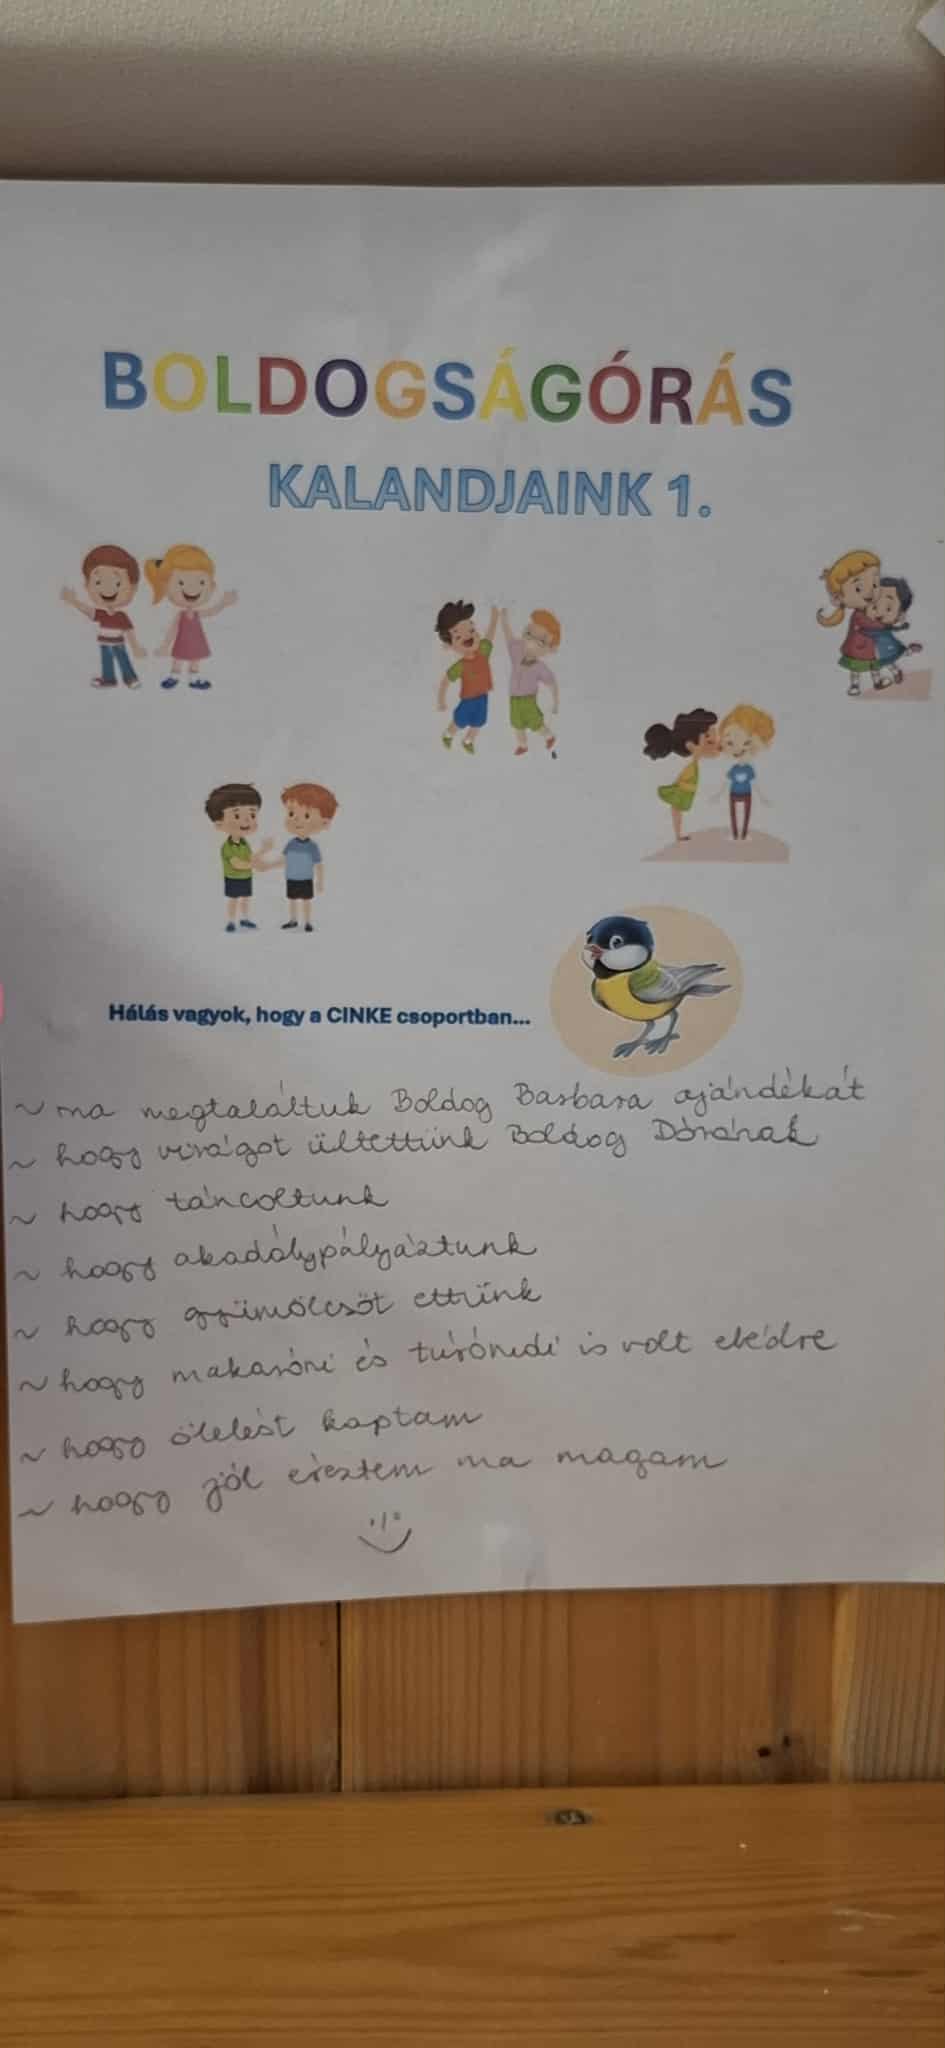 BOLDOGSÁGÓRÁS
KALANDJAINK 1.
Hálás vagyok, hogy a CINKE csoportban...
~ ma megtaláltuk Boldog Barbara ajándékát
~ hogy virágot ültettünk Boldog Dórának
~ hogy táncoltunk
~ hogy akadálypályáztunk
~ hogy gyümölcsöt ettünk
~ hogy makaróni és túrórudi is volt ebédre
~ hogy ölelést kaptam
~ hogy jól éreztem ma magam